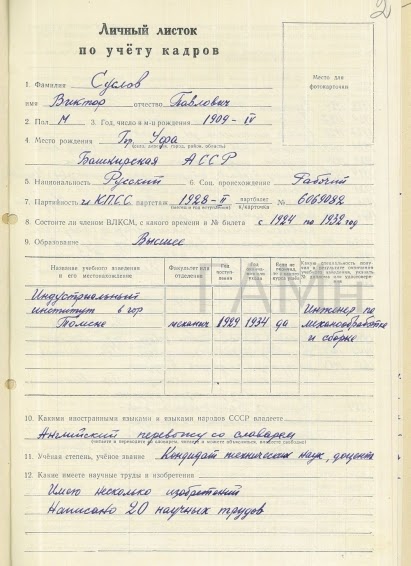 2
Личный листок
по учёту кадров
Место для
фотокарточки
1. Фамилия Суслов
имя Виктор отчество Павлович
2. Пол М 3. Год, число и м-ц рождения 1909 - IV
4. Место рождения Гор. Уфа
(село, деревня, город, район, область)
Башкирская АССР
5. Национальность Русский 6. Соц. происхождение Рабочий
7. Партийность чл КПСС партстаж 1928 - II партбилет к/карточка № 6069082
8. Состоите ли членом ВЛКСМ, с какого времени и № билета с 1924 по 1932 год
9. Образование Высшее
Название учебного заведения и его местонахождение
Факультет или отделение
Год поступления
Индустриальный
институт в гор
Томске механич. 1929 1934 да Инженер по
механообработке
и сборке
ГАМ
10. Какими иностранными языками и языками народов СССР владеете
Английский перевожу со словарем
(читаете и переводите со словарем, читаете и можете объясняться, владеете свободно)
11. Учёная степень, учёное звание Кандидат технических наук, доцент
12. Какие имеете научные труды и изобретения
Имею несколько изобретений
Написано 20 научных трудов